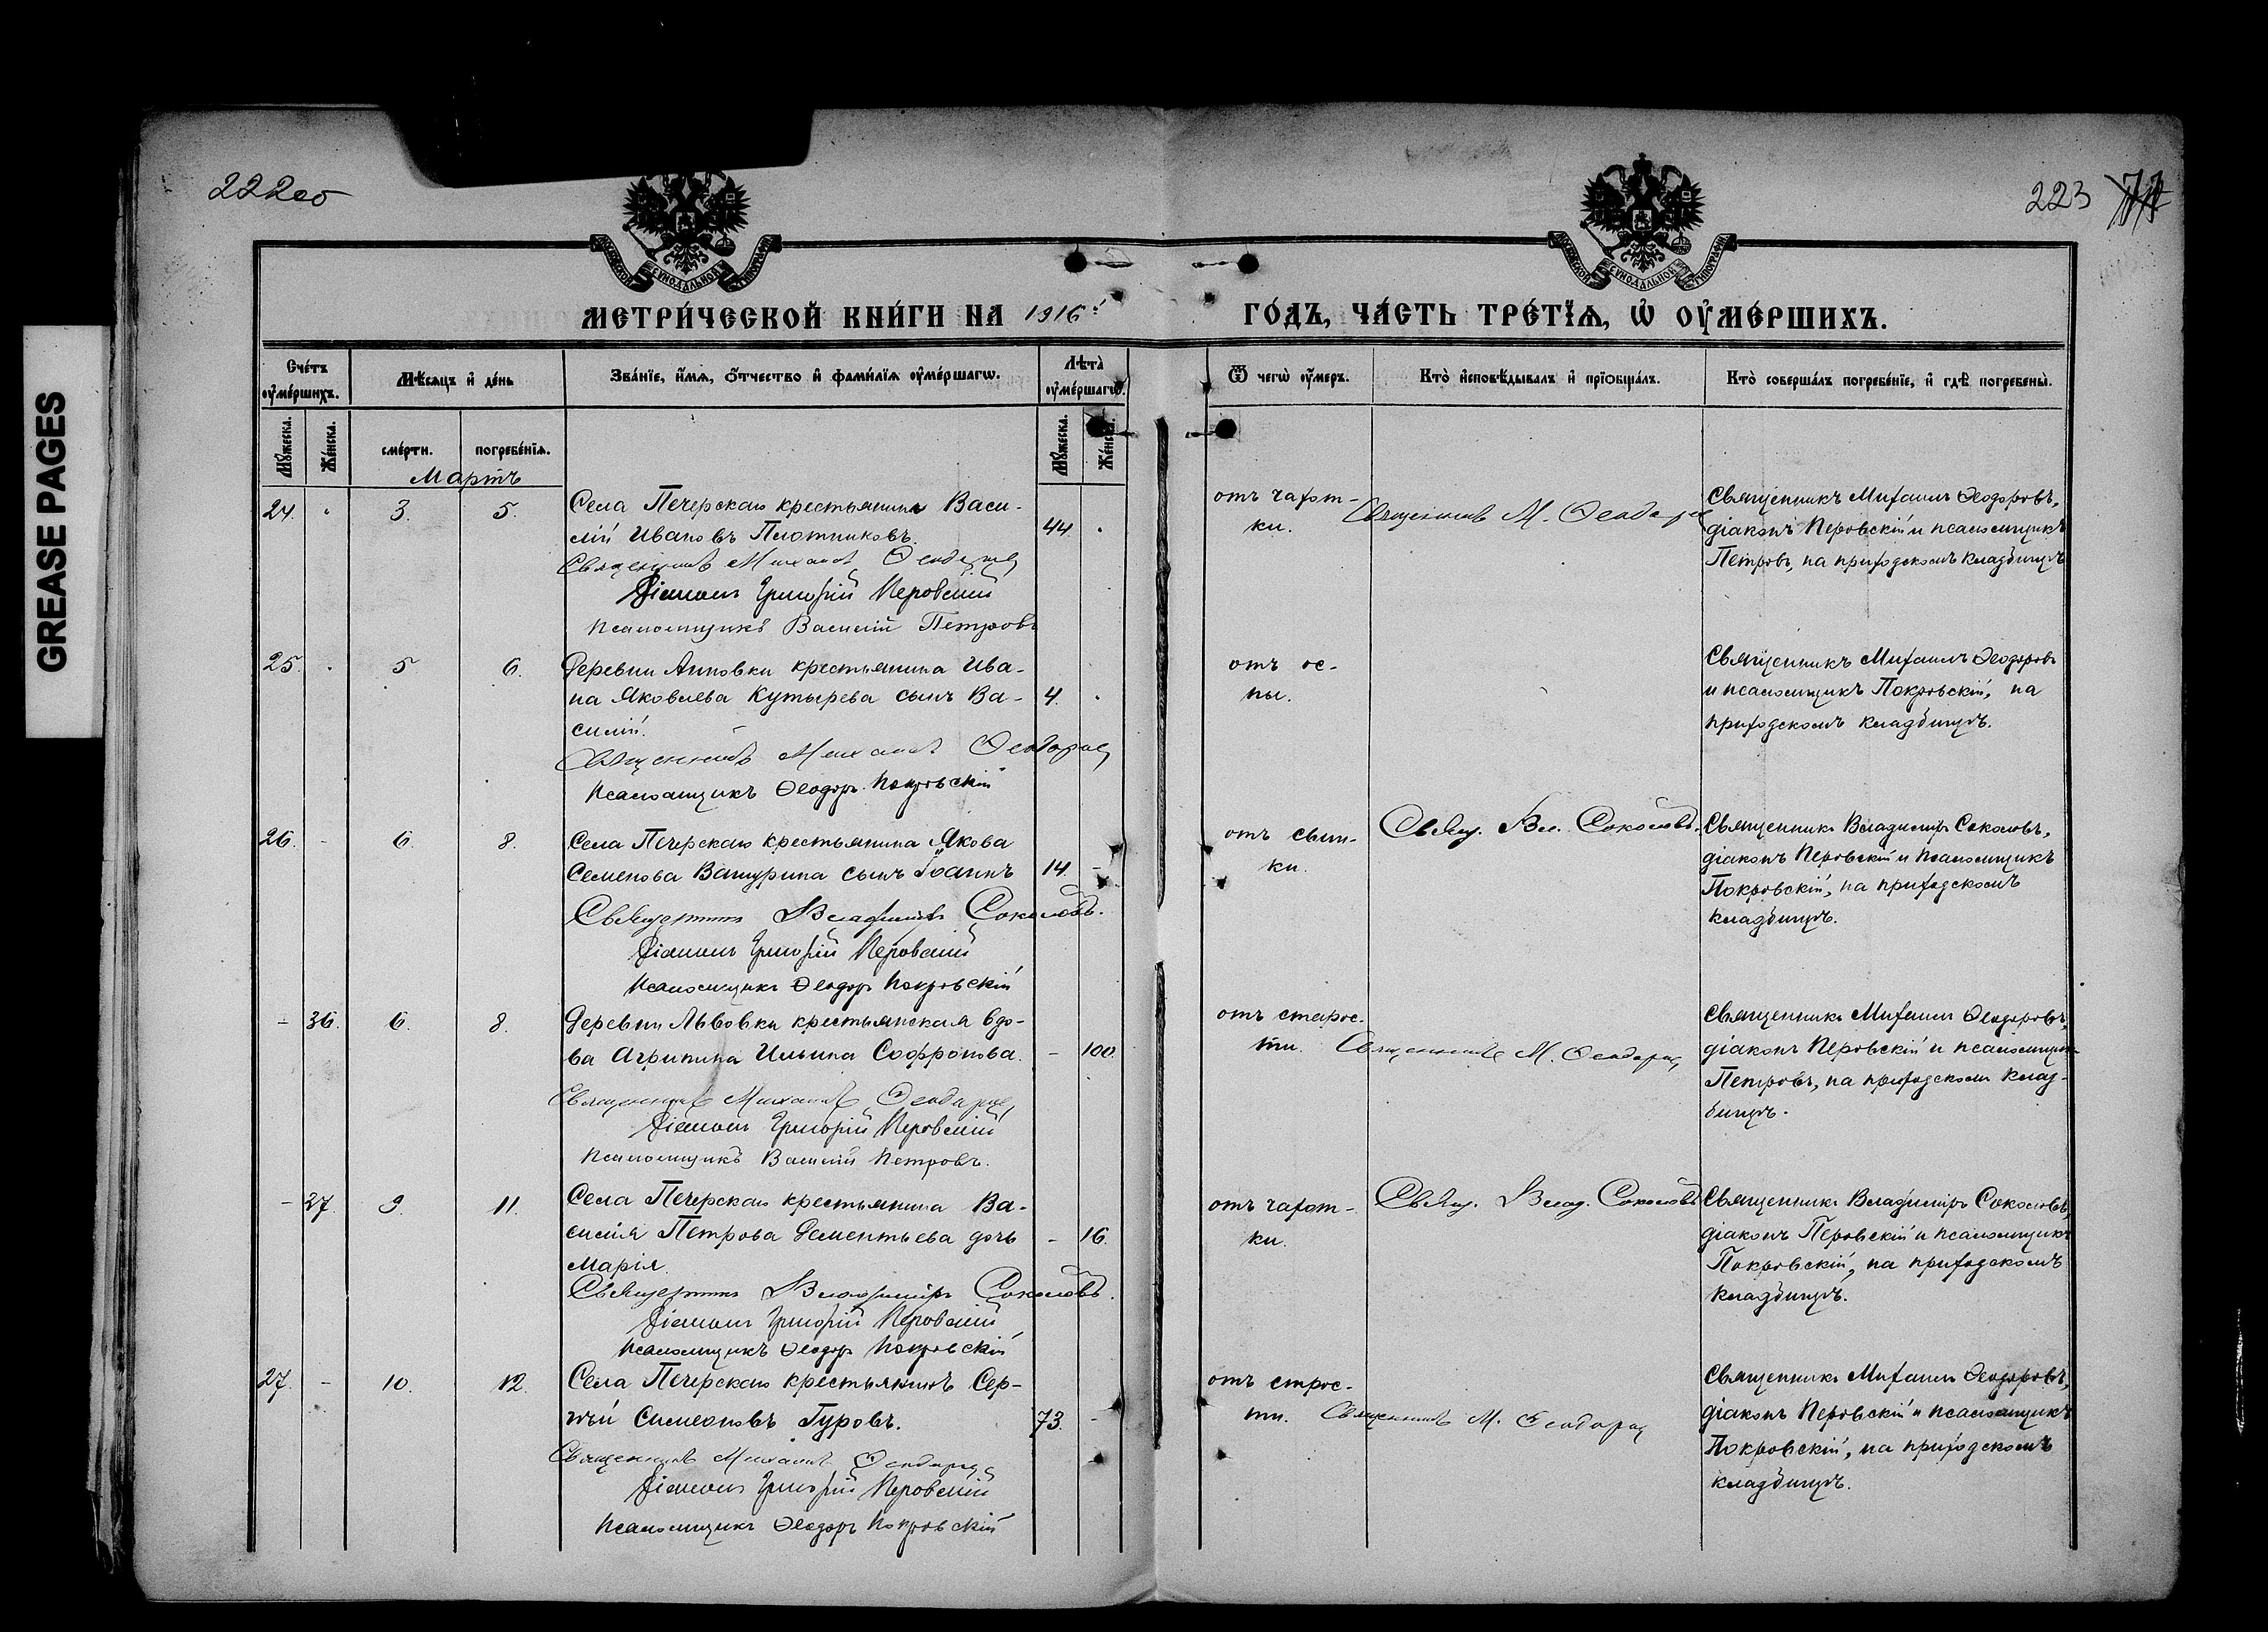 GREASE PAGES
222об
223
МОСКОВСКОЙ СУНОДАЛЬНОЙ ТИПОГРАФІИ
МОСКОВСКОЙ СУНОДАЛЬНОЙ ТИПОГРАФІИ
МЕТРИ́ЧЕСКОЙ КНИ́ГИ НА 1916 й
ГО́ДЪ, ЧА́СТЬ ТРЕ́ТЇѦ, Ѡ҆ ОУ҆МЕ́РШИХЪ.
Сче́тъ оу҆ме́ршихъ.
Мѣ́сѧцъ и҆ де́нь
Зва́нїе, и҆́мѧ, ѻ҆́тчество и҆ фами́лїѧ оу҆ме́ршагѡ.
Лѣ́та оу҆ме́ршагѡ.
Ѿ чегѡ̀ оу҆́меръ.
Кто̀ и҆сповѣ́дывалъ и҆ прїѻбща́лъ.
Кто̀ соверша́лъ погребе́нїе, и҆ гдѣ̀ погребены̀.
Мꙋ́жеска.
Же́нска.
сме́рти.
погребе́нїѧ.
Мꙋ́жеска.
Же́нска.
Мартъ
24. " 3. 5.
Села Печерскаго крестьянинъ Васи-
лій Ивановъ Плотниковъ.
44. "
Священникъ Михаилъ Ѳеодоровъ
Діаконъ Григорій Перовскій
Псаломщикъ Василій Петровъ
отъ чахот-
ки.
Священникъ М. Ѳеодоровъ
Священникъ Михаилъ Ѳеодоровъ,
діаконъ Перовскій и псаломщикъ
Петровъ, на приходскомъ кладбищѣ
25. " 5 6.
Деревни Анновки крестьянина Ива-
на Яковлева Кутырева сынъ Ва-
силій.
4. "
Священникъ Михаилъ Ѳеодоровъ
Псаломщикъ Ѳеодоръ Покровскій
отъ ос-
пы.
Священникъ Михаилъ Ѳеодоровъ
и псаломщикъ Покровскій, на
приходскомъ кладбищѣ.
26. - 6. 8.
Села Печерскаго крестьянина Якова
Семенова Вашурина сынъ Іоаннъ
14. -
Священникъ Владиміръ Соколовъ.
Діаконъ Григорій Перовскій
Псаломщикъ Ѳеодоръ Покровскій
отъ сып-
ки.
Свящ. Вл. Соколовъ.
Священникъ Владиміръ Соколовъ,
діаконъ Перовскій и псаломщикъ
Покровскій, на приходскомъ
кладбищѣ.
- 36. 6. 8.
Деревни Львовки крестьянская вдо-
ва Агрипина Ильина Софронова.
- 100.
Священникъ Михаилъ Ѳеодоровъ
Діаконъ Григорій Перовскій
Псаломщикъ Василій Петровъ.
отъ старос-
ти.
Священникъ М. Ѳеодоровъ
Священникъ Михаилъ Ѳеодоровъ,
діаконъ Перовскій и псаломщикъ
Петровъ, на приходскомъ клад-
бищѣ.
- 27. 9. 11.
Села Печерскаго крестьянина Ва-
силія Петрова Дементьева дочь
Марія.
- 16.
Священникъ Владиміръ Соколовъ.
Діаконъ Григорій Перовскій
Псаломщикъ Ѳеодоръ Покровскій
отъ чахот-
ки.
Свящ. Влад. Соколовъ
Священникъ Владиміръ Соколовъ,
діаконъ Перовскій и псаломщикъ
Покровскій, на приходскомъ
кладбищѣ.
27. - 10. 12.
Села Печерскаго крестьянинъ Сер-
гѣй Симеоновъ Гуровъ.
73. -
Священникъ Михаилъ Ѳеодоровъ
Діаконъ Григорій Перовскій
Псаломщикъ Ѳеодоръ Покровскій
отъ строс-
ти.
Священникъ М. Ѳеодоровъ
Священникъ Михаилъ Ѳеодоровъ,
діаконъ Перовскій и псаломщикъ
Покровскій, на приходскомъ
кладбищѣ.